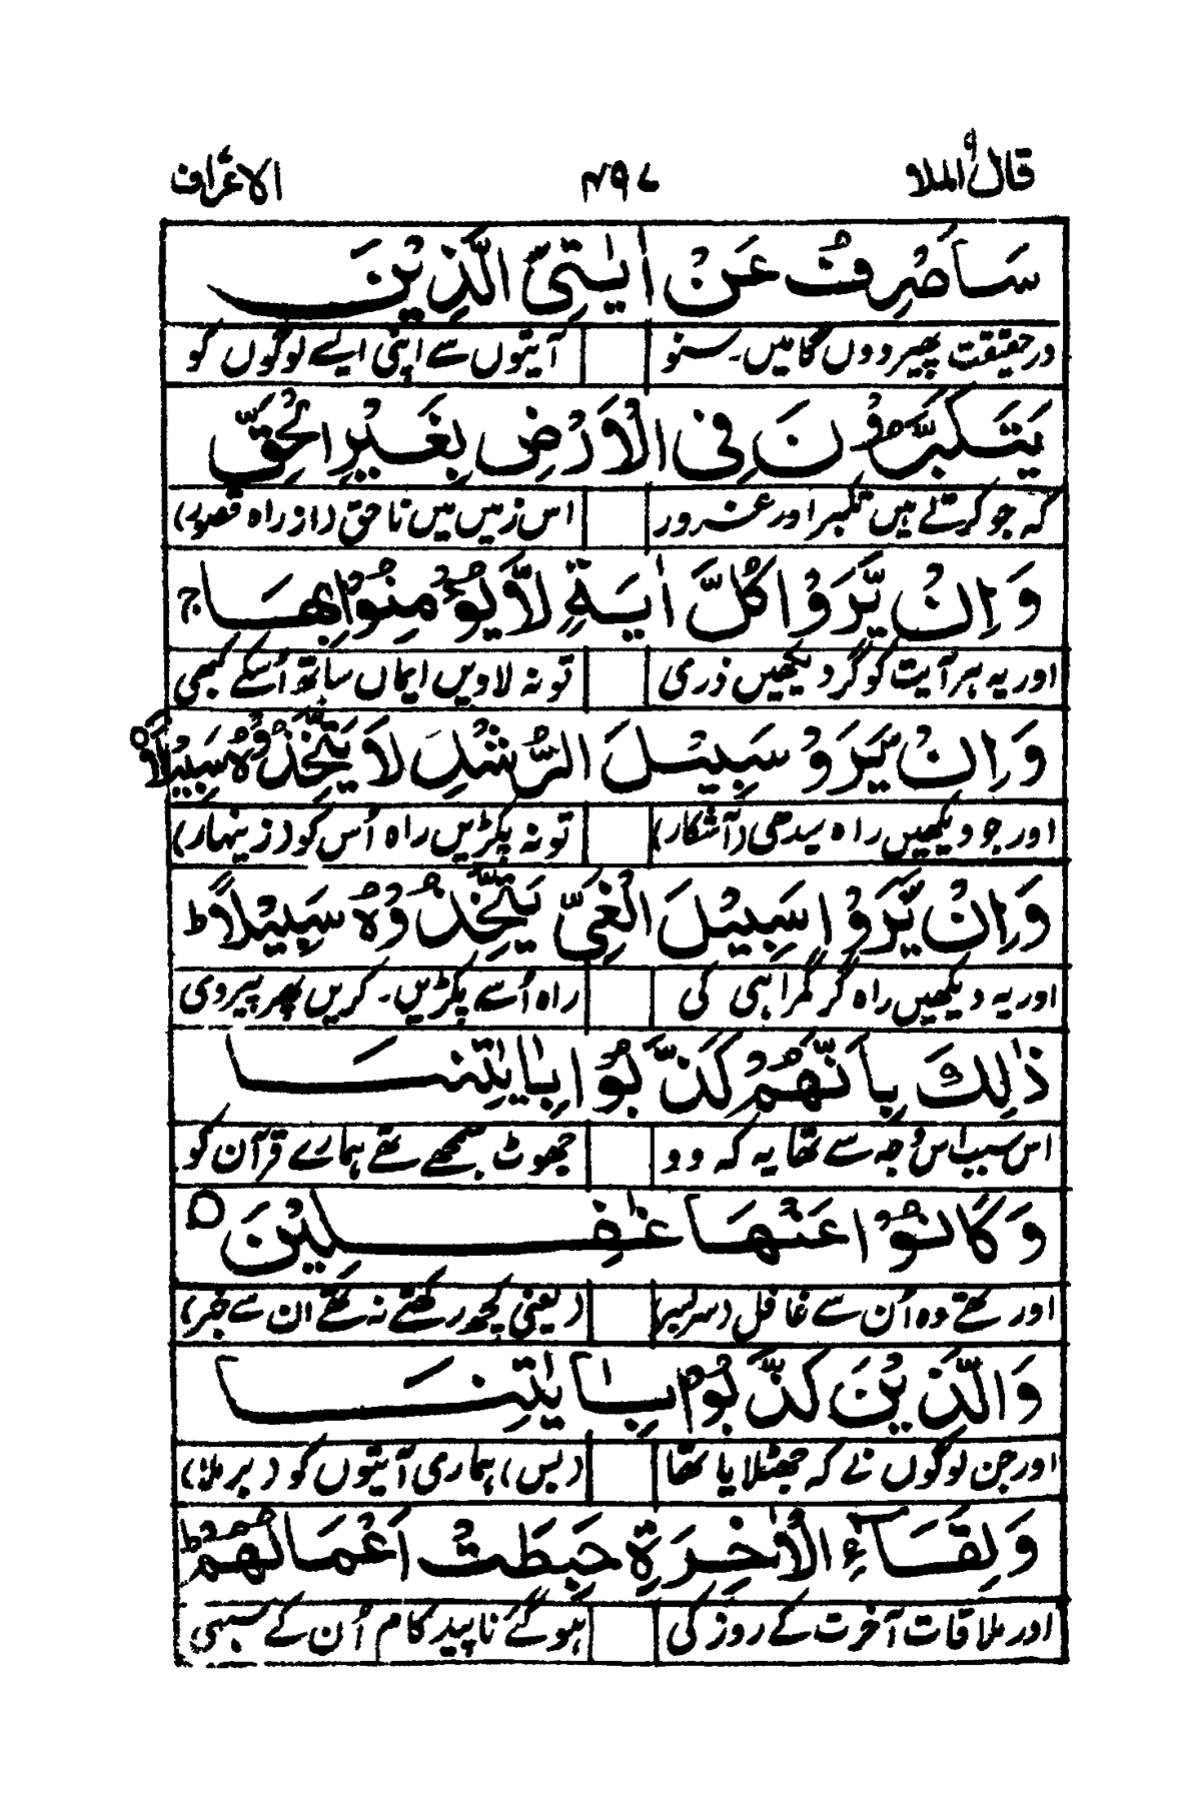 قال الملا ٩ ۴۹۷ الاعراف
سَاَصْرِفُ عَنْ اٰيٰتِيَ الَّذِيْنَ
درحقیقت پھیر دوں گا میں۔ سنو آیتوں سے اپنی ایسے لوگوں کو
يَتَكَبَّرُوْنَ فِى الْاَرْضِ بِغَيْرِ الْحَقِّ
کہ جو کرتے ہیں تکبر اور غرور اس زمیں میں ناحق (از راہ قصور)
وَاِنْ يَّرَوْا كُلَّ اٰيَةٍ لَّا يُؤْمِنُوْا بِهَا ج
اور یہ ہر آیت کو گر دیکھیں ذری تو نہ لاویں ایماں ساتھ اُسکے کبھی
وَاِنْ يَّرَوْ سَبِيْلَ الرُّشْدِ لَا يَتَّخِذُوْهُ سَبِيْلًا
اور جو دیکھیں راہ سیدھی (آشکار) تو نہ پکڑیں راہ اُس کو (زینہار)
وَاِنْ يَّرَوْا سَبِيْلَ الْغَيِّ يَتَّخِذُوْهُ سَبِيْلًا ط
اور یہ دیکھیں راہ گر گمراہی کی راہ اُسے پکڑیں۔ کریں پھر پیروی
ذٰلِكَ بِاَنَّهُمْ كَذَّبُوْا بِاٰيٰتِنَا
اس سبب اس وجہ سے تھا یہ کہ وو جھوٹ سمجھے تھے ہمارے قرآن کو
وَكَانُوْا عَنْهَا غٰفِلِيْنَ ○
اور تھے وہ اُن سے غافل (سربسر) (یعنی کچھ رکھتے نہ تھے ان سے خبر)
وَالَّذِيْنَ كَذَّبُوْا بِاٰيٰتِنَا
اور جن لوگوں نے کہ جھٹلایا تھا (بس) ہماری آیتوں کو (برملا)
وَلِقَآءِ الْاٰخِرَةِ حَبِطَتْ اَعْمَالُهُمْ ط
اور ملاقات آخرت کے روز کی ہو گئے ناپید کام اُن کے سبھی